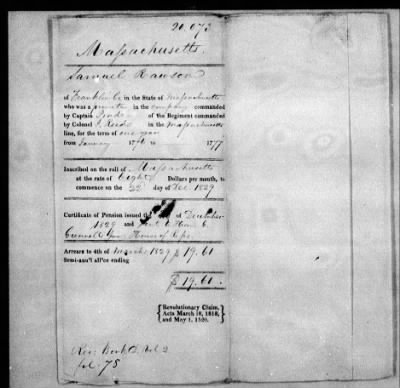 20.073
Massachusetts
Samuel Rawson
of Franklin Co in the State of Massachusetts
who was a private in the company commanded
by Captain of the Regiment commanded
by Colonel J. Reeds in the Massachusetts
line, for the term of one year
from January 1776 to 1777
Inscribed on the roll of Massachusetts
at the rate of Eight Dollars per month, to
commence on the 22 day of Dec. 1829
Certificate of Pension issued the of December
1829 and Sent to Hon. G.
Grennell Jun. House of Reps.
Arrears to 4th of March 1829 $ 19.61
Semi-anu'l all'ce ending
$ 19.61
Revolutionary Claim,
Acts March 18, 1818,
and May 1, 1820.
Rev: Book D, Vol 2
fol. 75